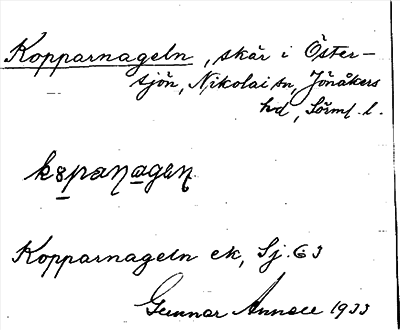 Kopparnageln, skär i Öster-
sjön, Nikolai sn, Jönåkers
hd, Sörml. l.
Kopparnageln ek, Sj. 63
Gunnar Annell 1933